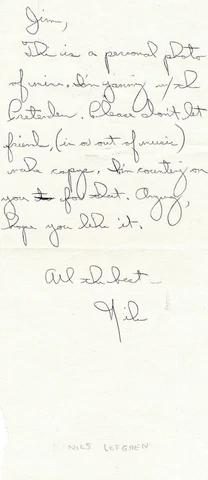 Jim,
This is a personal photo
of mine. I'm jamming w/ the
Pretenders. Please don't let
friends, (in or out of music)
make copys. I'm counting on
you for that. Anyway,
hope you like it.
All the best -
Nils
NILS LOFGREN